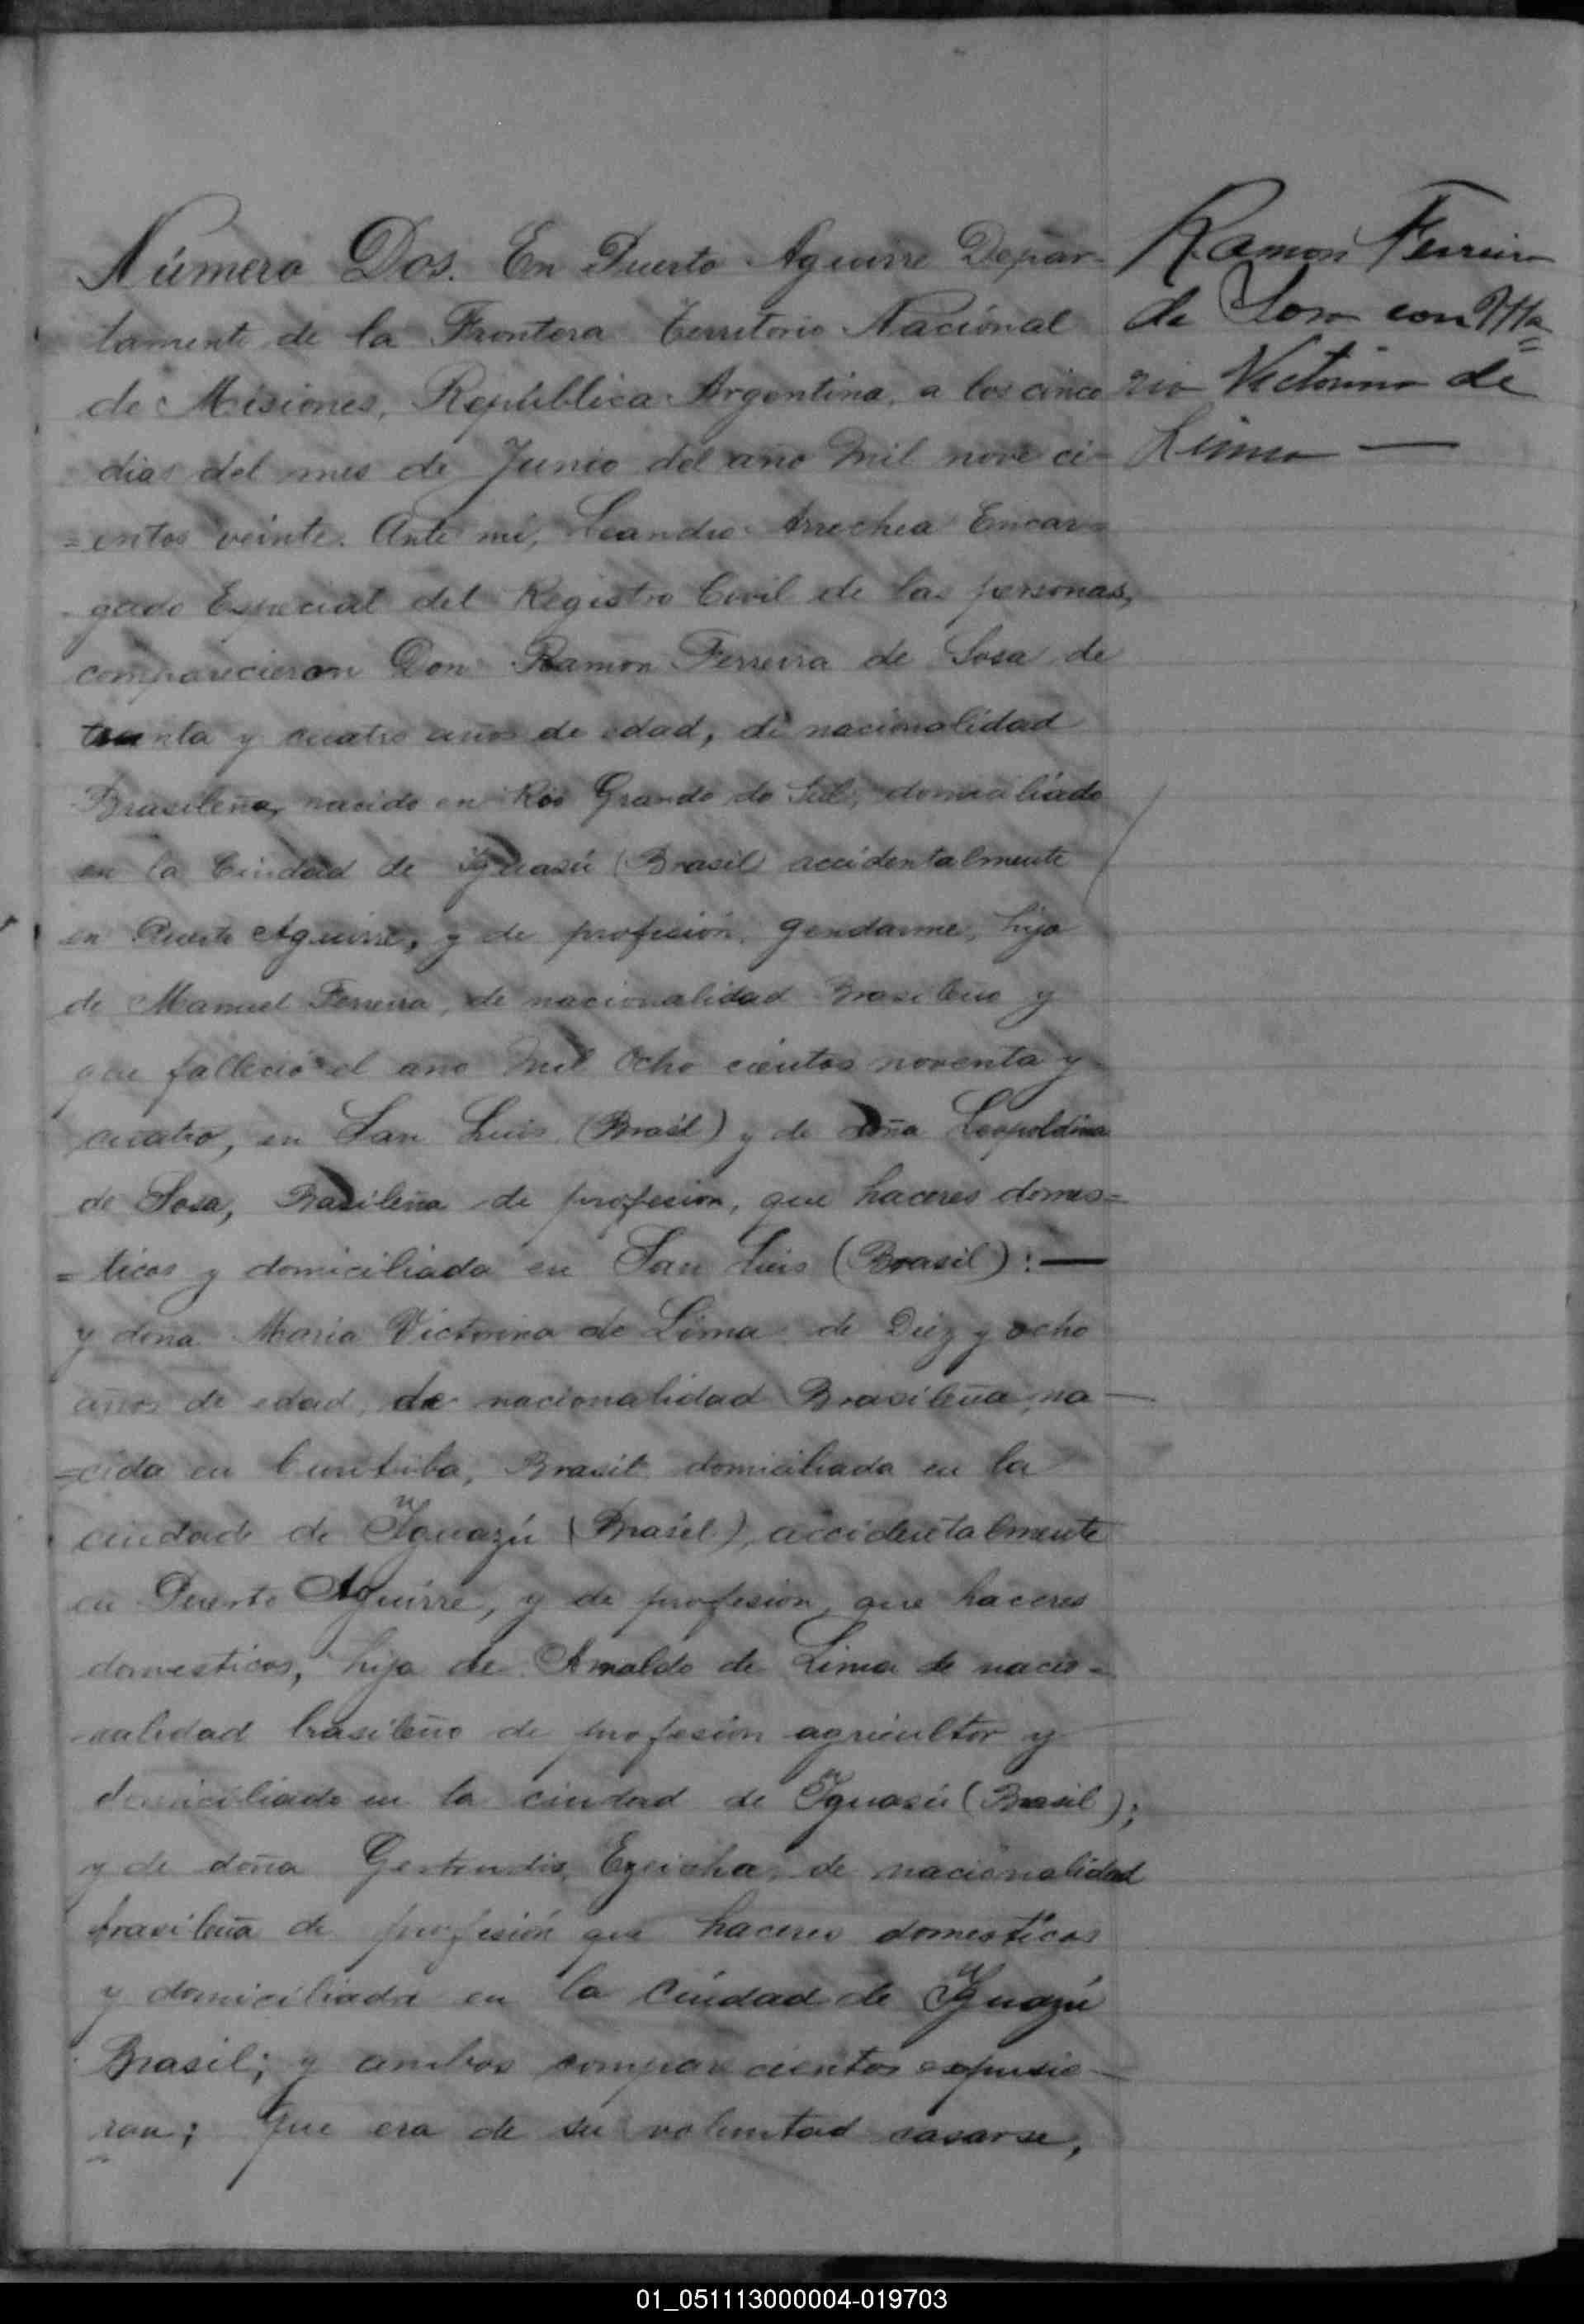 Número Dos. En Puerto Aguirre Depar-
tamento de la Frontera Territorio Nacional
de Misiones, República Argentina, a los cinco
dias del mes de Junio del año mil nove ci-
=entos veinte. Ante mi, Leandro Arrechea Encar=
gado Especial del Registro Civil de las personas,
comparecieron Don Ramon Ferreira de Sosa de
treinta y cuatro años de edad, de nacionalidad
Brasileña, nacido en Rio Grande do Sul, domiciliado
en la Ciudad de Iguasú (Brasil) accidentalmente
en Puerto Aguirre, y de profesión, gendarme, hijo
de Manuel Ferreira, de nacionalidad Brasileno y
que falleció el año mil Ocho cientos noventa y
cuatro, en San Luis (Brasil) y de doña Leopoldina
de Sosa, Brasileña de profesion, que haceres domes=
=ticos y domiciliada en San Luis (Brasil): —
y doña Maria Victorina de Lima de Diez y ocho
años de edad, de nacionalidad Brasileña na-
=cida en Curitiba, Brasil domiciliada en la
ciudad de Iguazú (Brasil), accidentalmente
en Puerto Aguirre, y de profesion, que haceres
domesticos, hija de Arnaldo de Lima de nacio=
-nalidad brasileño de profesión agricultor y
domiciliado en la ciudad de Iguasú (Brasil);
y de doña Gertrudis, de nacionalidad
brasileña de profesión que haceres domesticos
y domiciliada en la Ciudad de Iguazú
Brasil; y ambos comparecientes expusie-
ron; que era de su voluntad casarse,
Ramon Ferreira
de Sosa con Ma=
ria Victorina de
Lima —
01_051113000004-019703